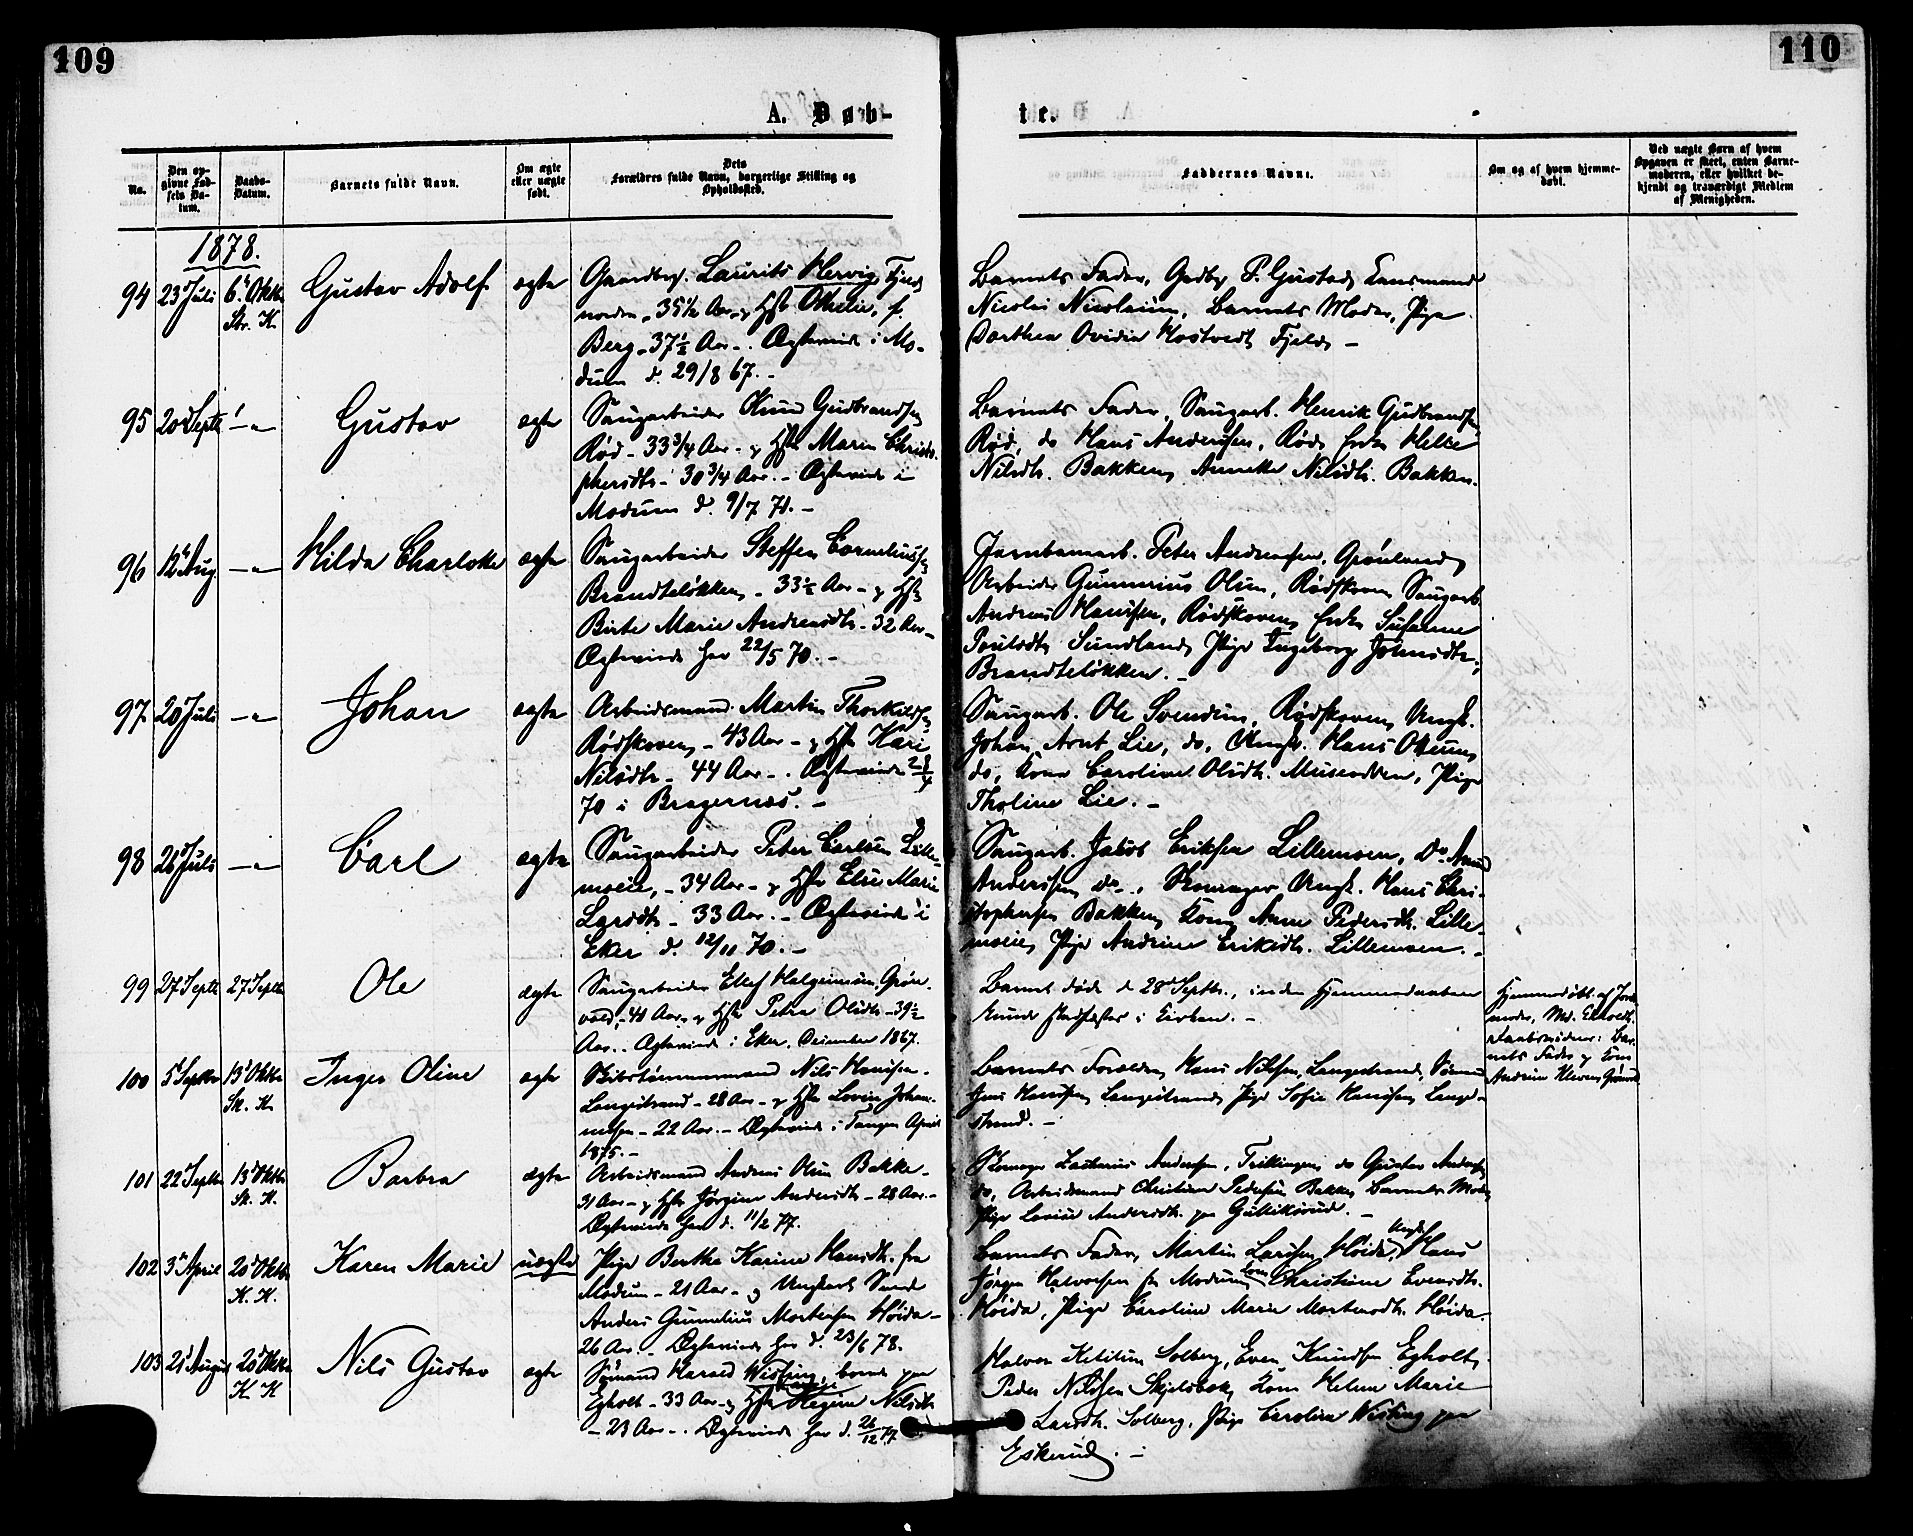 109
110
A. Døb-
te.
No.
Den op-
givne Fød-
sels Da-
tum.
Daabs-
Datum.
Barnets fulde Navn.
Om ægte
eller uægte
født.
Dets
Forældres fulde Navn, borgerlige Stilling og
Opholdssted.
Faddernes Navne.
Om og af hvem hjemme-
døbt.
Ved uægte Børn af hvem
Opgaven er skeet, enten Barne-
moderen, eller hvilket be-
kjendt og troværdigt Medlem
af Menigheden.
1878.
94 23d Juli 6t Oktbr Str. K. Gustav Adolf ægte
Gaardbr. Laurits Hervig Fjeld
norden - 35½ Aar - g Hst Othelie, f.
Berg - 37½ Aar -. Ægteviede i Mo-
dum d. 29/8 67. -
Barnets Fader, Gadbr P. Gustad,
Nicolai Nicolaisen, Barnets Moder, Pige
Dorthea Ovidia Hostvedt, Fjeld -
95 20d Septb -"- Gustav ægte
Saugarbeider Knud Gudbrandsen
Rød - 33¾ Aar - g Hst Maren Christo-
phersdtr - 30¾ Aar. - Ægteviede i
Modum d. 9/7 71. -
Barnets Fader, Saugarb. Henrik Gudbrandsen
Rød, do Hans Anderssen, Rød, Enke Helle
Nilsdtr. Bakken, Annette Nilsdtr. Bakken.
96 12t Aug -"- Hilda Charlotte ægte
Saugarbeider Steffen Corneliussen
Brandteløkken - 33½ Aar - g Hst
Birte Marie Andreasdtr - 32 Aar -
Ægteviede her 22/5 70. -
Jernbanearb. Peter Andreassen, Grønland,
Arbeider Gunnerius Olsen, Rødskoven, Saugarb.
Andreas Hanssen, Rødskoven, Enke Susanne
Poulsdtr Sundland, Pige Ingeborg Johnsdtr,
Brandteløkken. -
97 20d Juli -"- Johan ægte
Arbeidsmand Martin Thorkildsen
Rødskoven, - 43 Aar - g Hst Kari
Nilsdtr - 44 Aar -. Ægteviede
70 i Bragernæs. -
Saugarb. Ole Svendsen, Rødskoven, Ungk.
Johan Arnt Lie, do, Ungk. Hans Olsen,
do, Kone Caroline Olsdtr. Museodden, Pige
Tholine Lie. -
98 26d Juli -"- Carl ægte
Saugarbeider Peter Carlsen Lille-
moeie, - 34 Aar - g Hst Else Marie
Larsdtr - 33 Aar. - Ægteviede i
Eker d. 12/11 70. -
Saugarb. Jakob Eriksen Lillemoen, Do
Anderssen do -, Skomager Ungk. Hans Chri-
stophersen Bakken, Kone Anne Pedersdtr. Lille-
moeie, Pige Andrine Eriksdtr. Lillemoen. -
99 27d Septb 27d Septb Ole ægte
Saugarbeider Ellef Helgeensen Grøn-
vold, - 41 Aar, - g Hst Petra Olsdtr - 39½
Aar.. Ægteviede i Eker, December 1867.
Barnet døde d 28d Septbr., inden Hjemmedaaben
kunde stadfæstes i Kirken. -
Hjemmedøbt af Jord-
moder, Md.
Daabsvidner: Bar-
nets Fader g Kone
Andrine
100 5t Septbr 13d Oktbr St. K. Inger Oline ægte
Skibstømmermand Nils Hanssen
Langestrand - 28 Aar - g Hst Lovise Johan-
nessen - 22 Aar. - Ægteviede i Tangen April
1875. -
Barnets Forældre, Hans Nilsen, Langestrand,
Jens Hanssen Langestrand, Pige Sofie Hanssen Lange-
strand. -
101 22d Septbr 13d Oktbr St. K. Barbra ægte
Arbeidsmand Andreas Olsen Bakke -
31 Aar - g Hst Jørgine Andersdtr - 28 Aar. -
Ægteviede her d. 11/2 77.
Skomager Zacharias Anderssen, do Gustav Anderssen
do, Arbeidsmand Christian Pedersen Bakke, Barnets Moder,
Pige Lovise Andersdtr. paa Gulliksrud. -
102 3d April 20d Oktbr K. K. Karen Marie uægte
Pige Bertha Karine Hansdtr. fra
Modum - 21 Aar - g Ungkarl
Anders Gunnelius Mortensen Høida -
26 Aar. - Ægteviede her d. 23/6 78.
Barnets Fader, Martin Larssen, Høida, Ungk Hans
Jørgen Halvorsen fra Modum, Kone Christine Evensdtr.
Høida, Pige Caroline Marie Mortensdtr. Høida.
103 21d August 20d Oktbr K. K Nils Gustav ægte
Sømand Harald Wisting, boende paa
Egholt - 33 Aar - g Hst Nilsdtr
- 23 Aar -. Ægteviede her d. 26/12 77.
Halvor Ketilsen Solberg, Even Knudsen Egholt,
Peder Nilssen Skjelsbæk, Kone Helene Marie
Larsdtr. Solberg, Pige Caroline Wisting paa
Eskerud. -